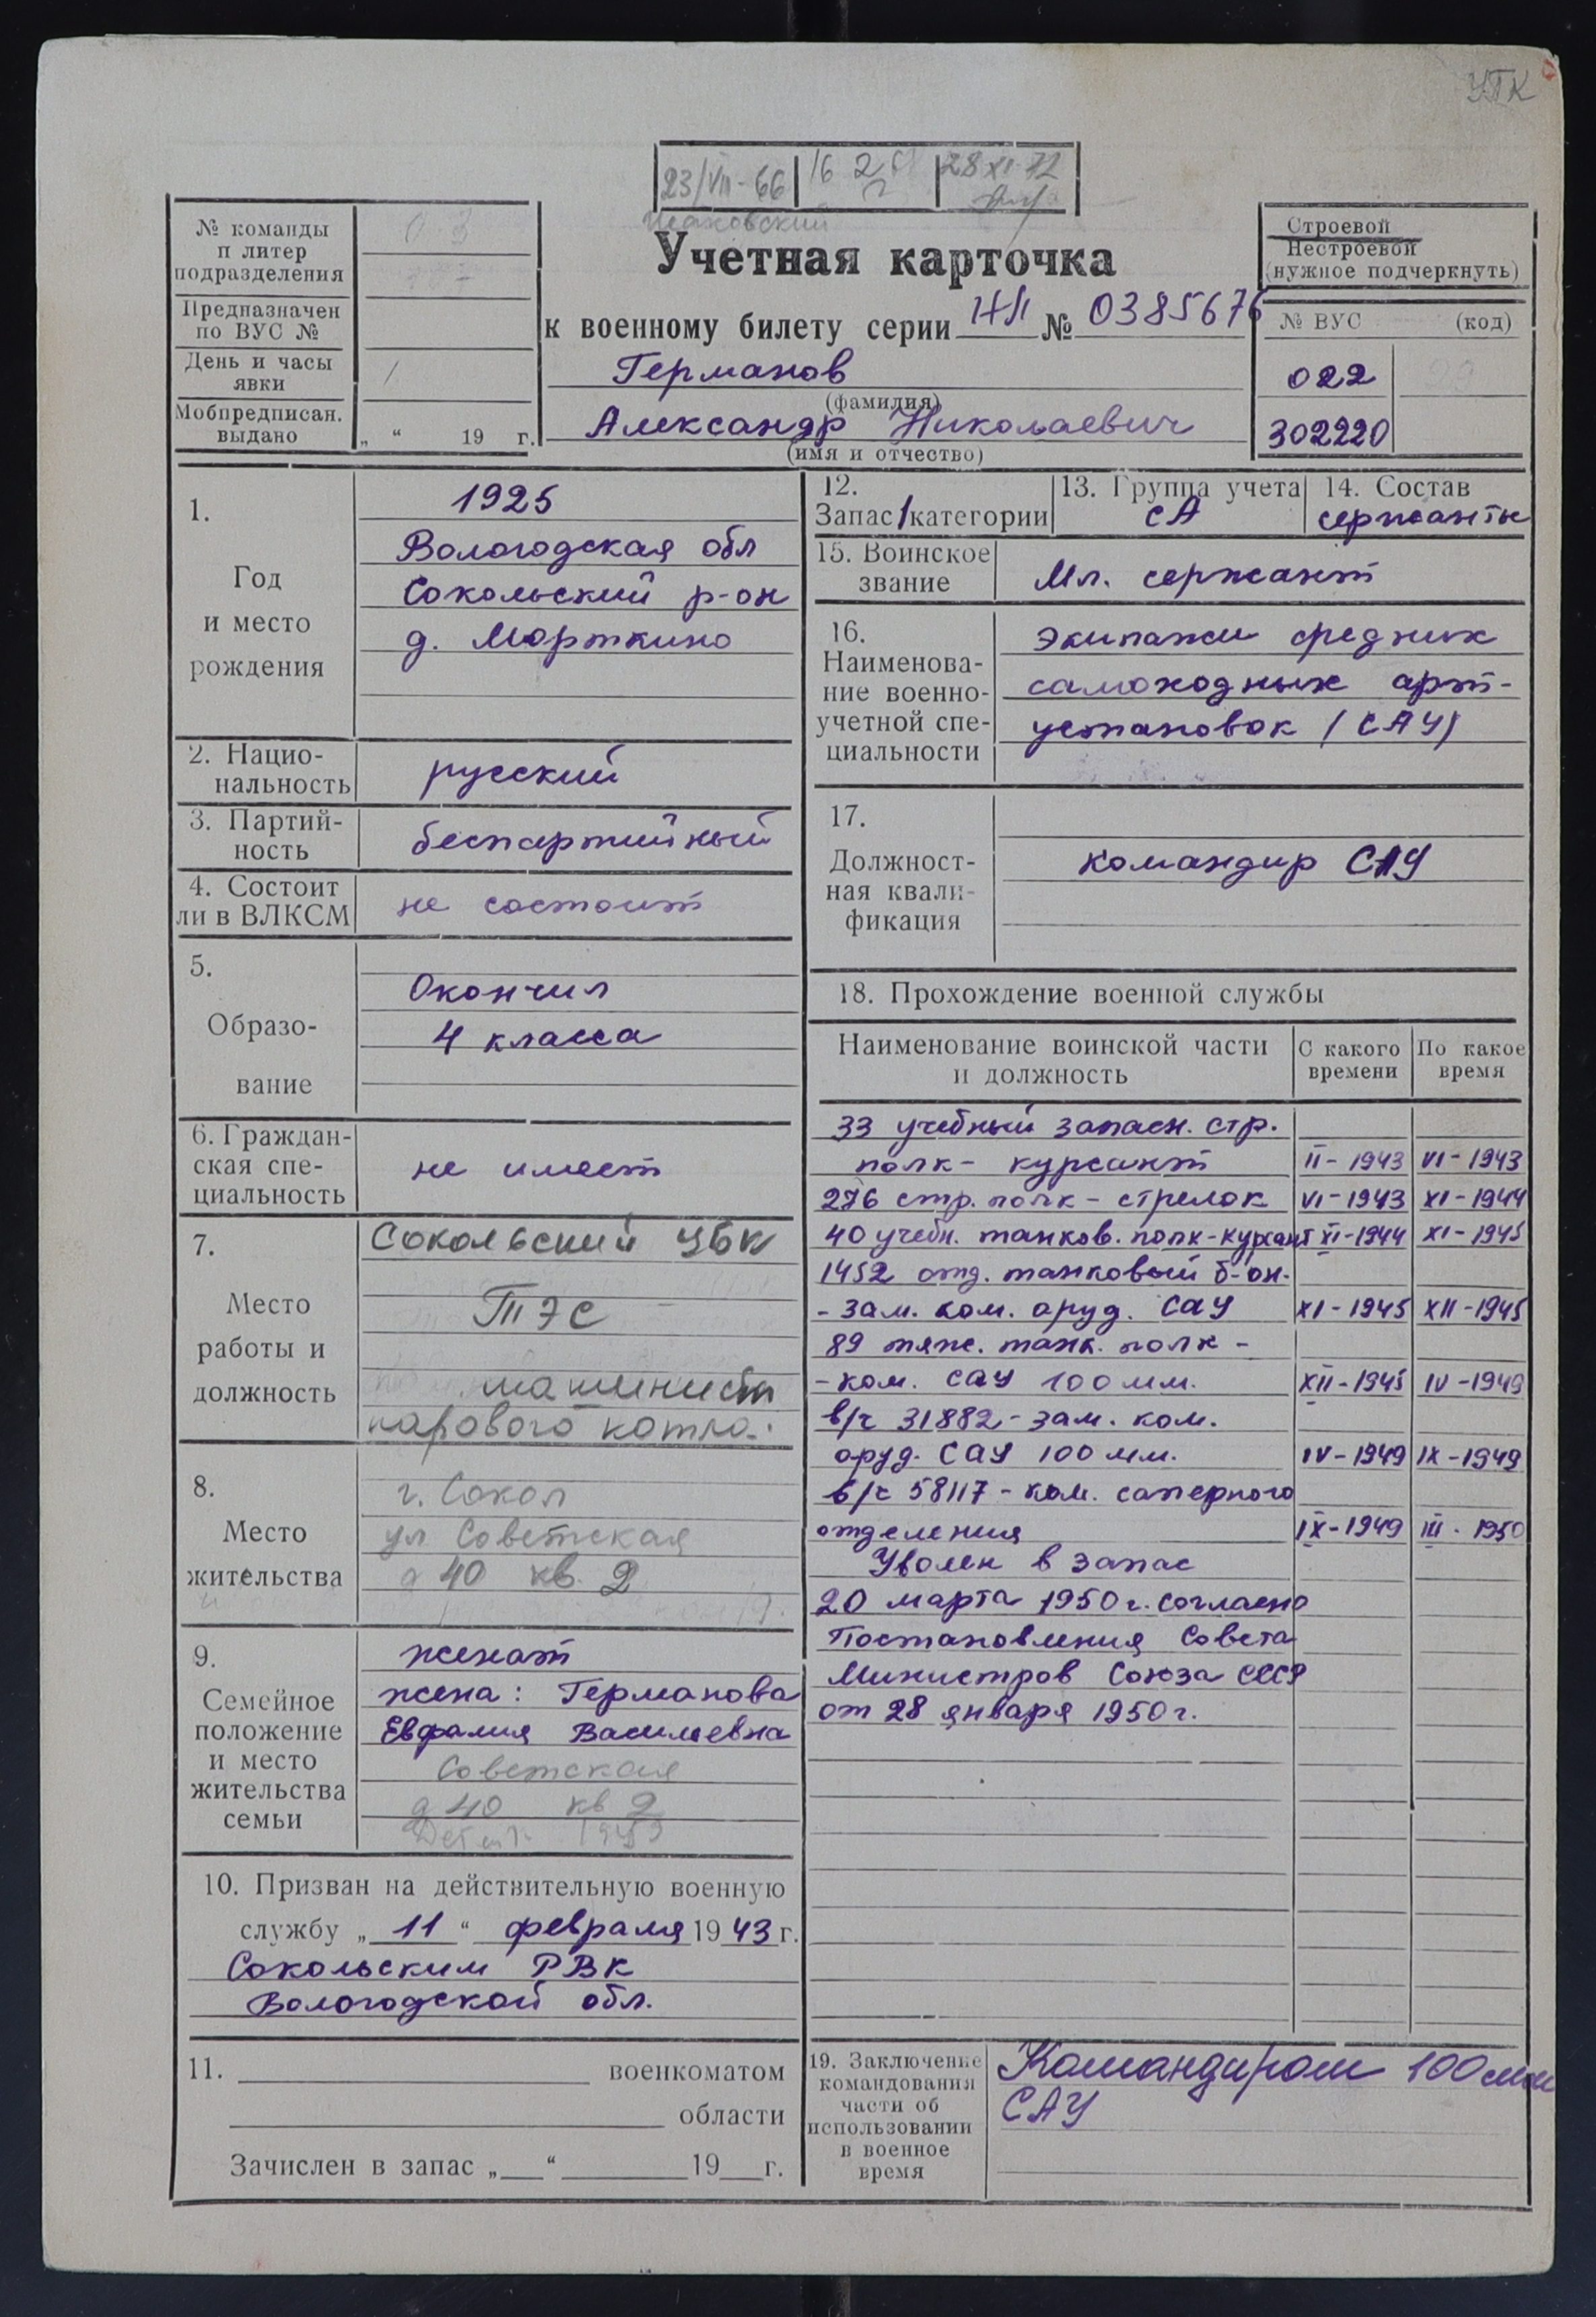 УПК
23/VII-66
28 XI-72
№ команды
п литер
подразделения
Предназначен
по ВУС №
День и часы
явки
Мобпредписан.
выдано
„ “ 19 г.
Учетная карточка
к военному билету серии НЛ № 0385676
Германов
(фамилия)
Александр Николаевич
(имя и отчество)
Строевой
Нестроевой
(нужное подчеркнуть)
№ ВУС (код)
022
302220
1.
Год
и место
рождения
1925
Вологодская обл
Сокольский р-он
д. Морткино
2. Нацио-
нальность
русский
3. Партий-
ность
беспартийный
4. Состоит
ли в ВЛКСМ
не состоит
5.
Образо-
вание
Окончил
4 класса
6. Граждан-
ская спе-
циальность
не имеет
7.
Место
работы и
должность
Сокольский ЦБК
ТЭС
машинист
парового котла.
8.
Место
жительства
г. Сокол
ул Советская
д 40 кв. 2
9.
Семейное
положение
и место
жительства
семьи
женат
жена: Германова
Евфалия Васильевна
Советская
д 40 кв 2
10. Призван на действительную военную
службу „ 11 “ февраля 19 43 г.
Сокольским РВК
Вологодской обл.
11. военкоматом
области
Зачислен в запас „ “ 19 г.
12.
Запас 1 категории
13. Группа учета
СА
14. Состав
сержанты
15. Воинское
звание
Мл. сержант
16.
Наименова-
ние военно-
учетной спе-
циальности
экипажи средних
самоходных арт-
установок (САУ)
17.
Должност-
ная квали-
фикация
командир САУ
18. Прохождение военной службы
Наименование воинской части
и должность
С какого
времени
По какое
время
33 учебный запасн. стр.
полк - курсант II-1943 VI-1943
276 стр. полк - стрелок VI-1943 XI-1944
40 учебн. танков. полк-курсант XI-1944 XI-1945
1452 отд. танковый б-он-
- зам. ком. оруд. САУ XI-1945 XII-1945
89 тяж. танк. полк -
- ком. САУ 100 мм. XII-1945 IV-1949
в/ч 31882 - зам. ком.
оруд. САУ 100 мм. IV-1949 IX-1949
в/ч 58117 - ком. саперного
отделения IX-1949 III-1950
Уволен в запас
20 марта 1950 г. согласно
Постановления Совета
Министров Союза ССР
от 28 января 1950 г.
19. Заключение
командования
части об
использовании
в военное
время
Командиром 100 мм
САУ